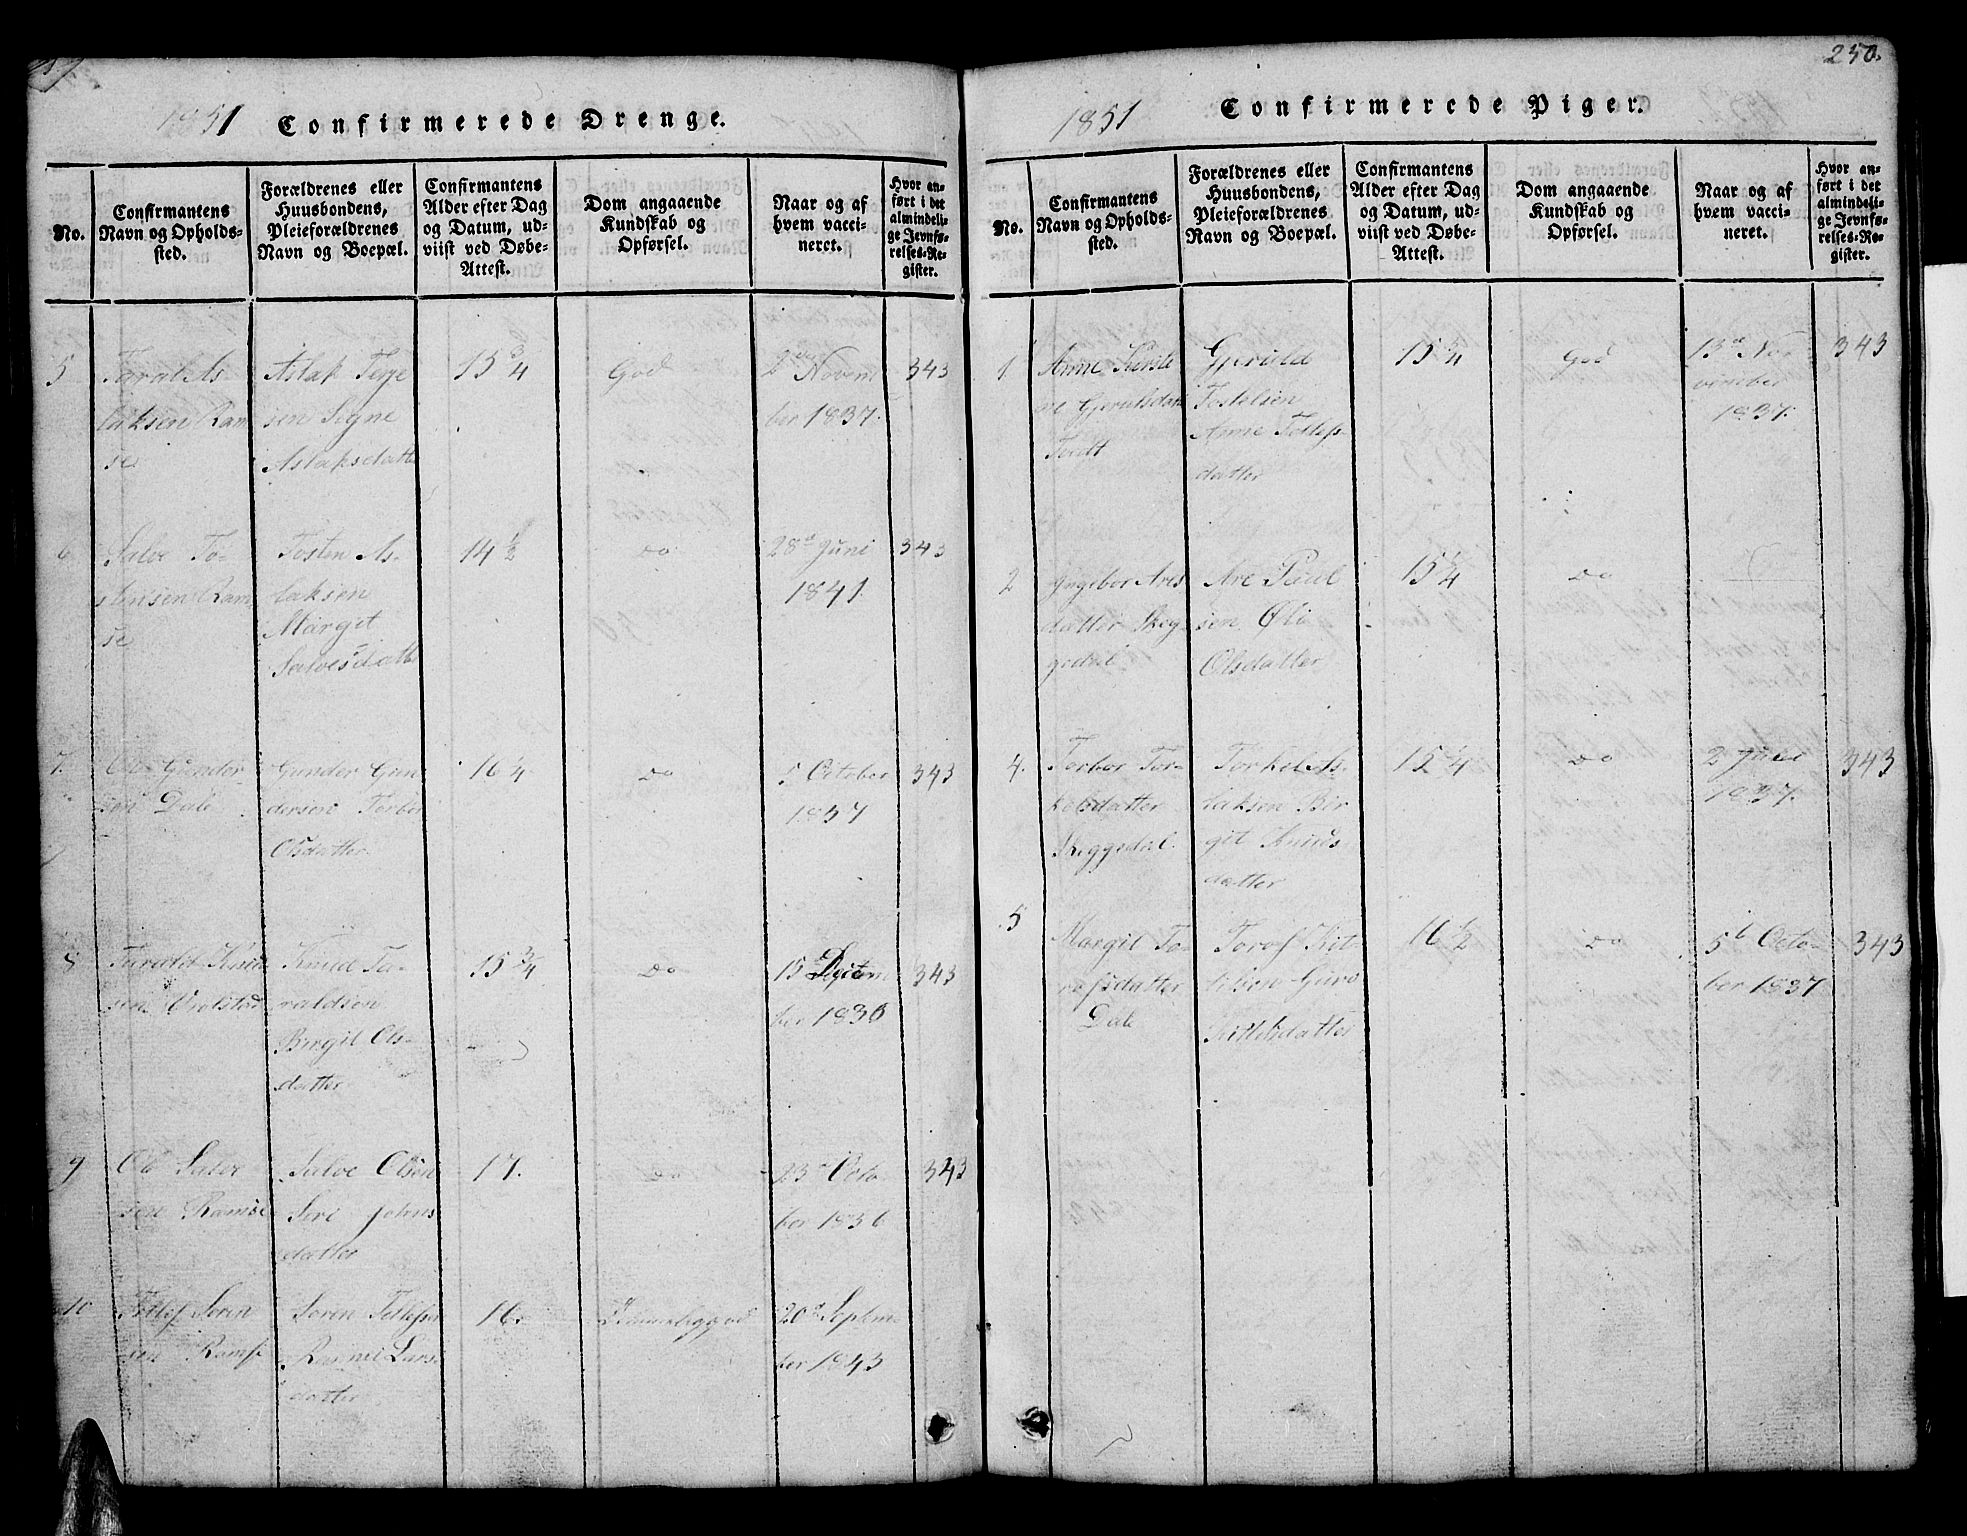 250.
1851 Confirmerede Drenge.
No.
Confirmantens
Navn og Opholds-
sted.
Forældrenes eller
Huusbondens,
Pleieforældrenes
Navn og Boepæl.
Confirmantens
Alder efter Dag
og Datum, ud-
viist ved Døbe-
Attest.
Dom angaaende
Kundskab og
Opførsel.
Naar og af
hvem vacci-
neret.
Hvor an-
ført i det
almindeli-
ge Jevnfø-
relses-Re-
gister.
5
Taral As-
laksen Ram
se
Aslak Terje
sen Signe
Aslaksdatte
15 3/4
God
Novem
ber 1837.
343
6
Salve To-
stensen Ram
se
Tosten As-
laksen
Margit
Salvesdatte
14 1/2
do
28d Juni
1841.
343
7.
Ole Gunder
sen Dale
Gunder Gun
dersen Torbor
Olsdatter
16 1/4
do
5 October
1837
343
8
Knud
sen
Knud Ta-
raldsen
Birgit Ols-
datter
15 3/4
do
15
ber 1836
343
9
Ole Salve
sen Ramse
Salve Olsen
Siri Johns
datter
17.
do
23d Octo
ber 1836
343
10
Tellef Søren
sen Ramse
Søren Tellefsen
Lars-
datter
16.
20d Septem
ber 1843
1851 Confirmerede Piger.
No.
Confirmantens
Navn og Opholds-
sted.
Forældrenes eller
Huusbondens,
Pleieforældrenes
Navn og Boepæl.
Confirmantens
Alder efter Dag
og Datum, ud-
viist ved Døbe-
Attest.
Dom angaaende
Kundskab og
Opførsel.
Naar og af
hvem vacci-
neret.
Hvor an-
ført i det
almindeli-
ge Jevnfø-
relses-Re-
gister.
1
Anne Kirste
ne Gjeruldsdatt
Tvedt
Gjeruld
Anne Tellefs
datter
15 3/4
God
13d No-
vember
1837.
343
2
Ingebor Ares
datter Skeg-
gedal
Are Paul
sen
Olsdatter
15 1/4
do
4.
Torbor Tor-
kelsdatter
Skeggedal.
Torkel As-
laksen Bir
git Knuds-
datter
15 1/4
do
2 Juni
1837.
343
5
Margit To-
rofsdatter
Dale
Torof Kit-
telsen Guro
Kittelsdatter
16 1/2
do
5t Octo-
ber 1837
343